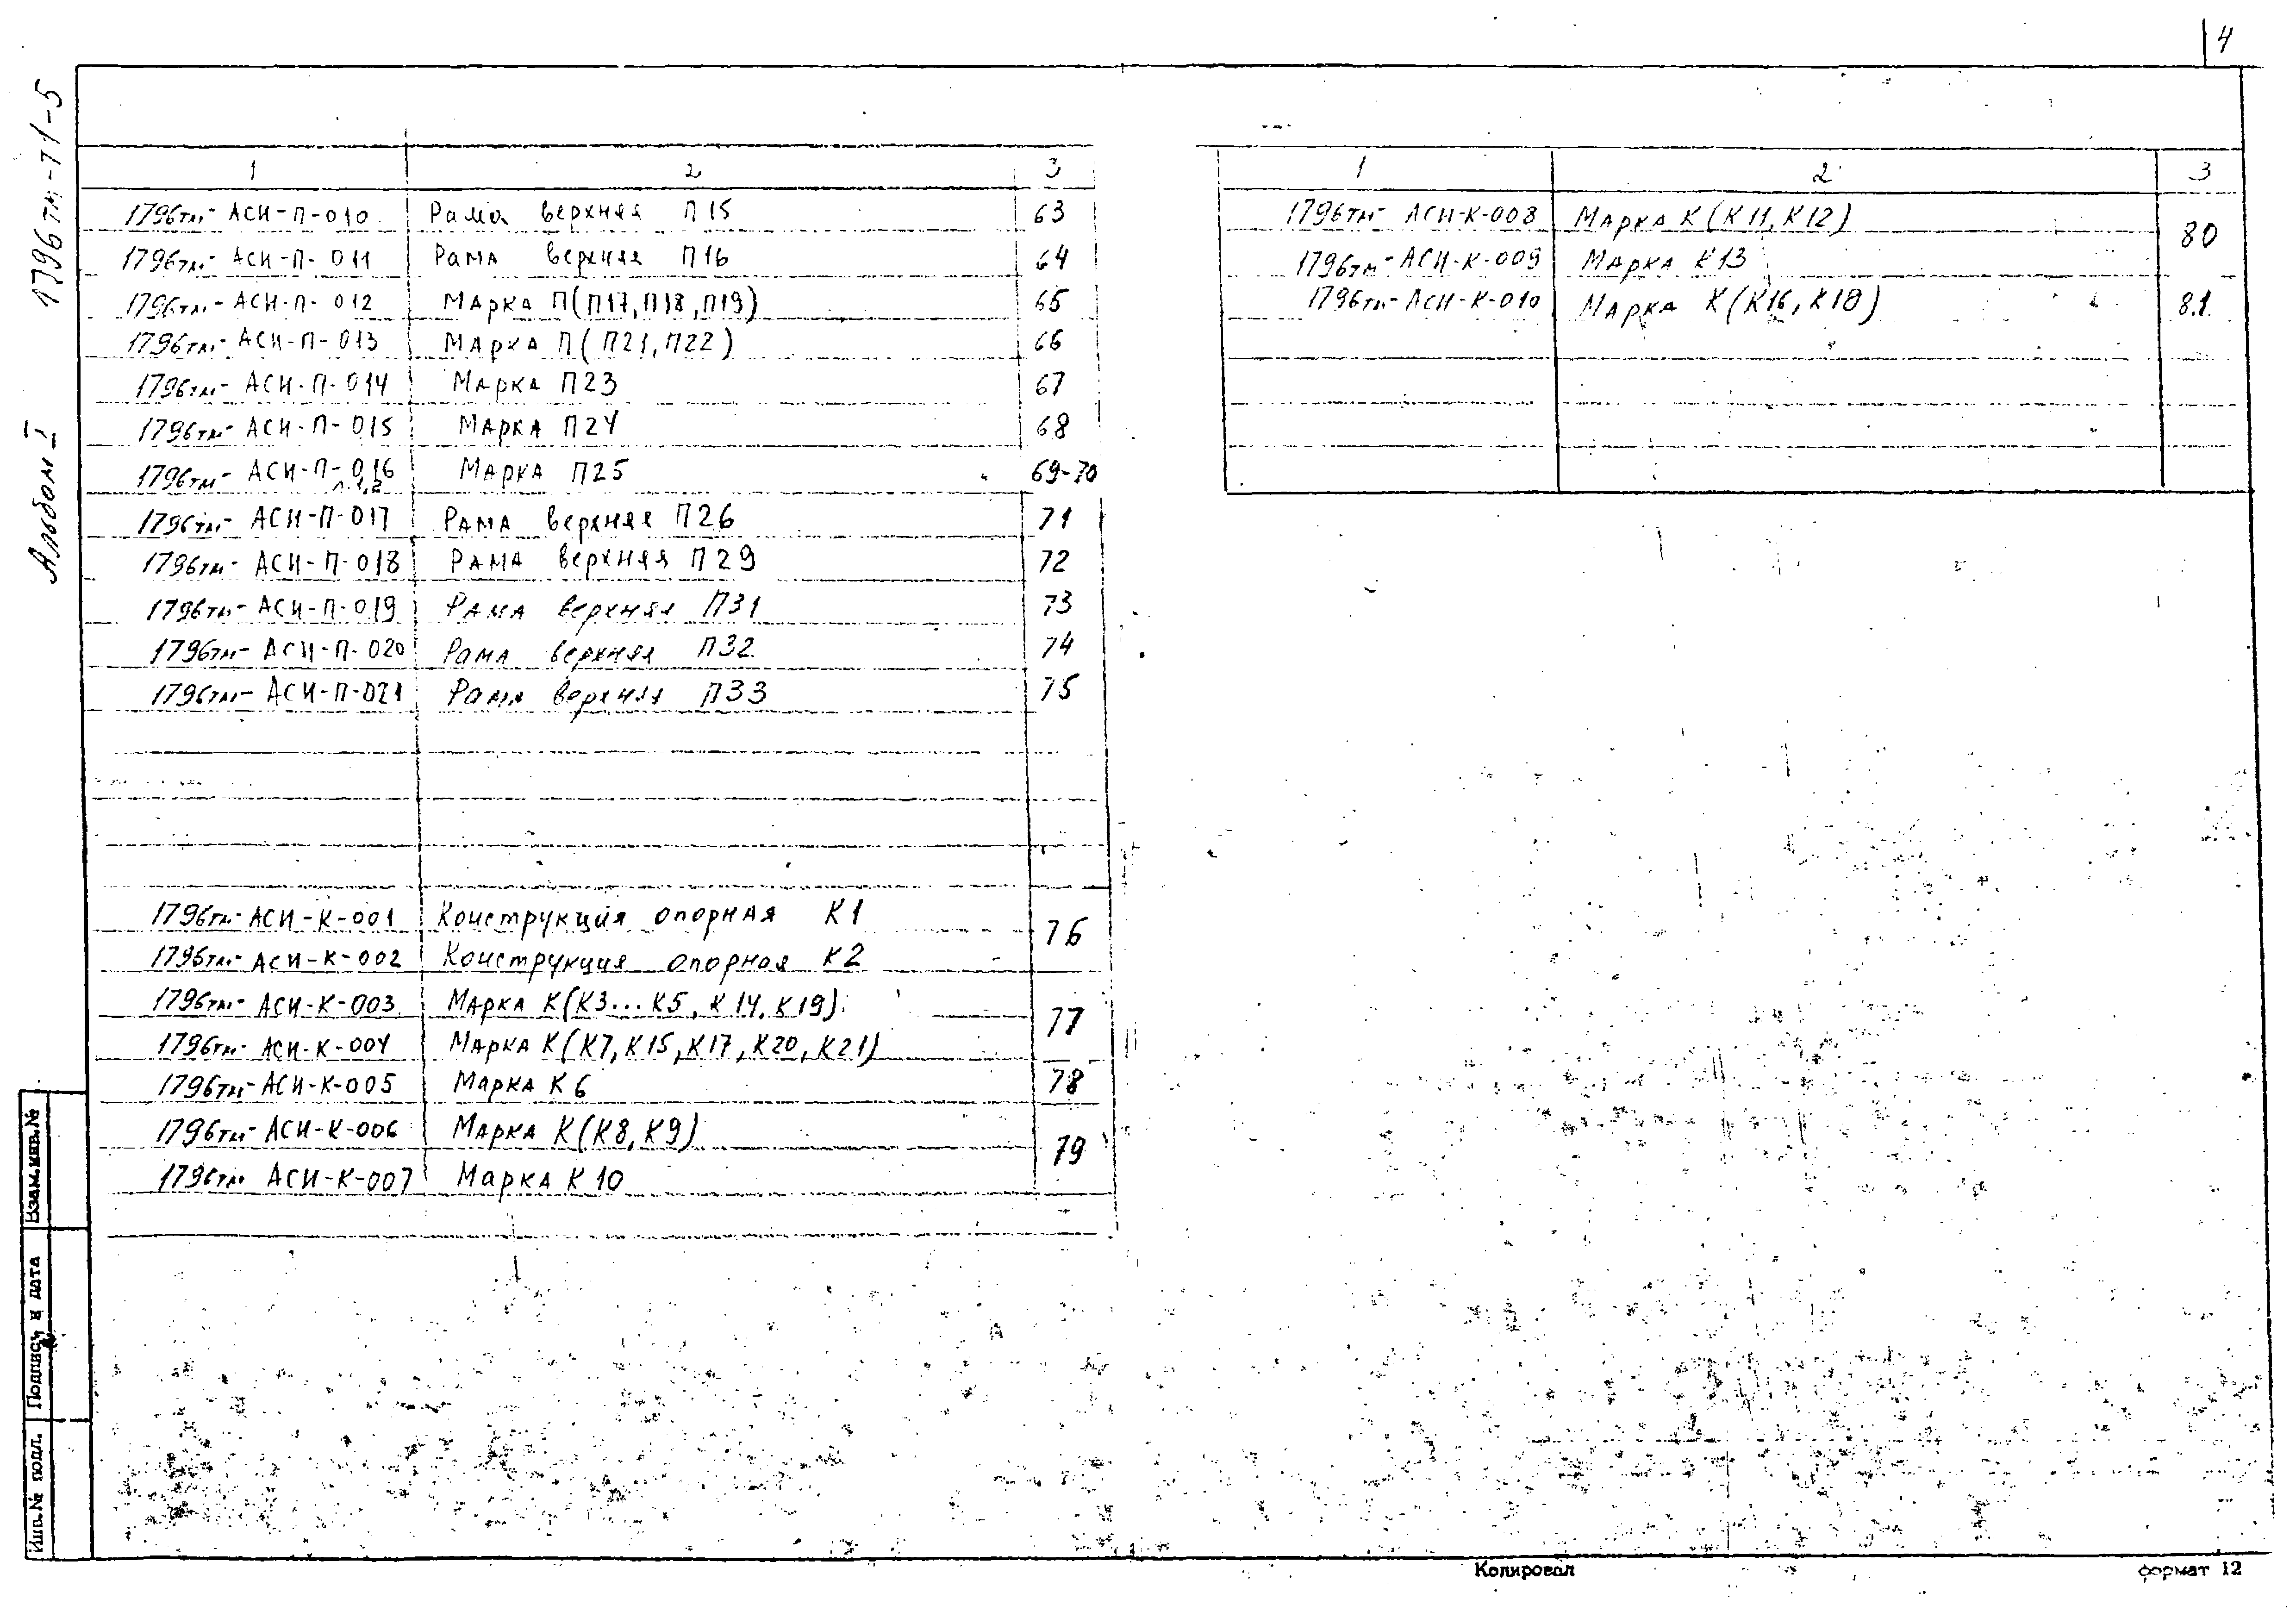 4
1796тм-Т1-5
Альбом I
1 2 3
1796тм- АСИ-П-010 Рама верхняя П15 63
1796тм- АСИ-П-011 Рама верхняя П16 64
1796тм- АСИ-П-012 Марка П(П17,П18,П19) 65
1796тм- АСИ-П-013 Марка П(П21,П22) 66
1796тм- АСИ-П-014 Марка П23 67
1796тм- АСИ-П-015 Марка П24 68
1796тм- АСИ-П-016 Марка П25 69-70
1796тм- АСИ-П-017 Рама верхняя П26 71
1796тм- АСИ-П-018 Рама верхняя П29 72
1796тм- АСИ-П-019 Рама верхняя П31 73
1796тм- АСИ-П-020 Рама верхняя П32 74
1796тм- АСИ-П-021 Рама верхняя П33 75
1796тм- АСИ-К-001 Конструкция опорная К1 76
1796тм- АСИ-К-002 Конструкция опорная К2
1796тм- АСИ-К-003 Марка К(К3...К5, К14, К19) 77
1796тм- АСИ-К-004 Марка К(К7,К15,К17,К20,К21)
1796тм- АСИ-К-005 Марка К6 78
1796тм- АСИ-К-006 Марка К(К8,К9) 79
1796тм АСИ-К-007 Марка К10
1 2 3
1796тм- АСИ-К-008 Марка К(К11,К12) 80
1796тм- АСИ-К-009 Марка К13
1796тм- АСИ-К-010 Марка К(К16,К18) 81
Взам.инв.№
Подпись и дата
Инв.№ подл.
Копировал
формат 12